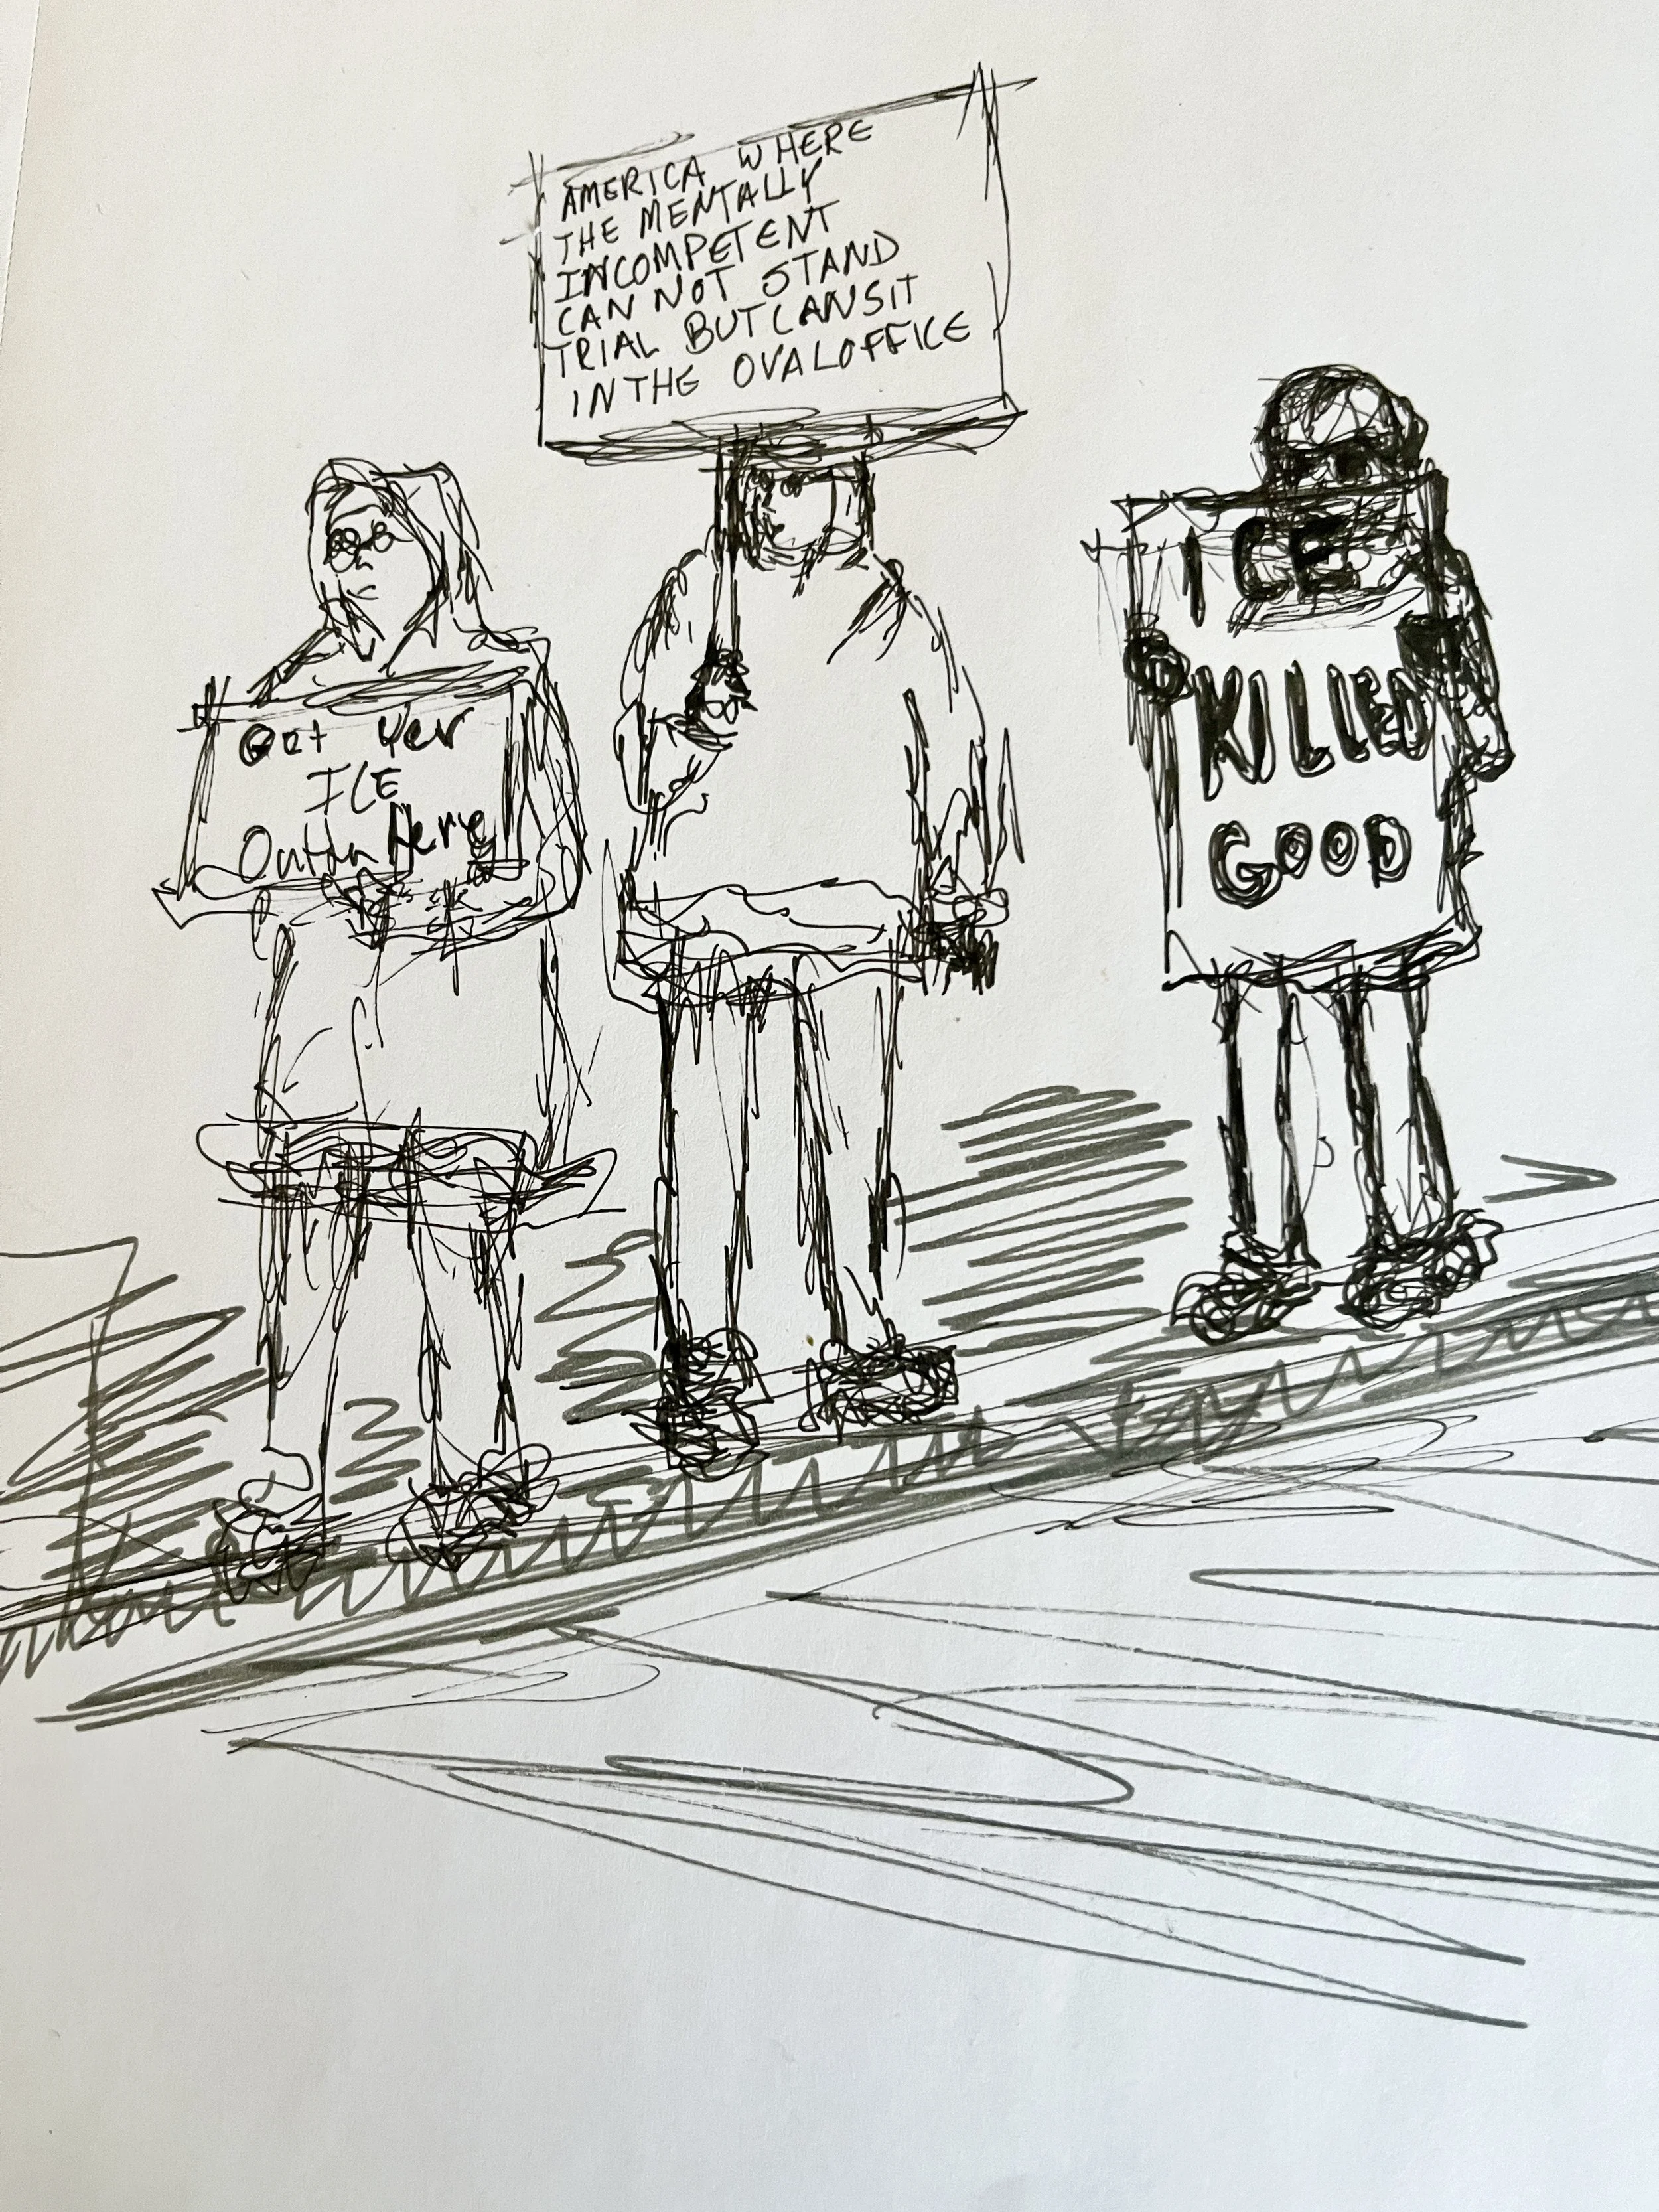 Get Yer
ICE
Outta Here
AMERICA WHERE
THE MENTALLY
INCOMPETENT
CAN NOT STAND
TRIAL BUT CAN SIT
IN THE OVAL OFFICE
ICE
KILLED
GOOD